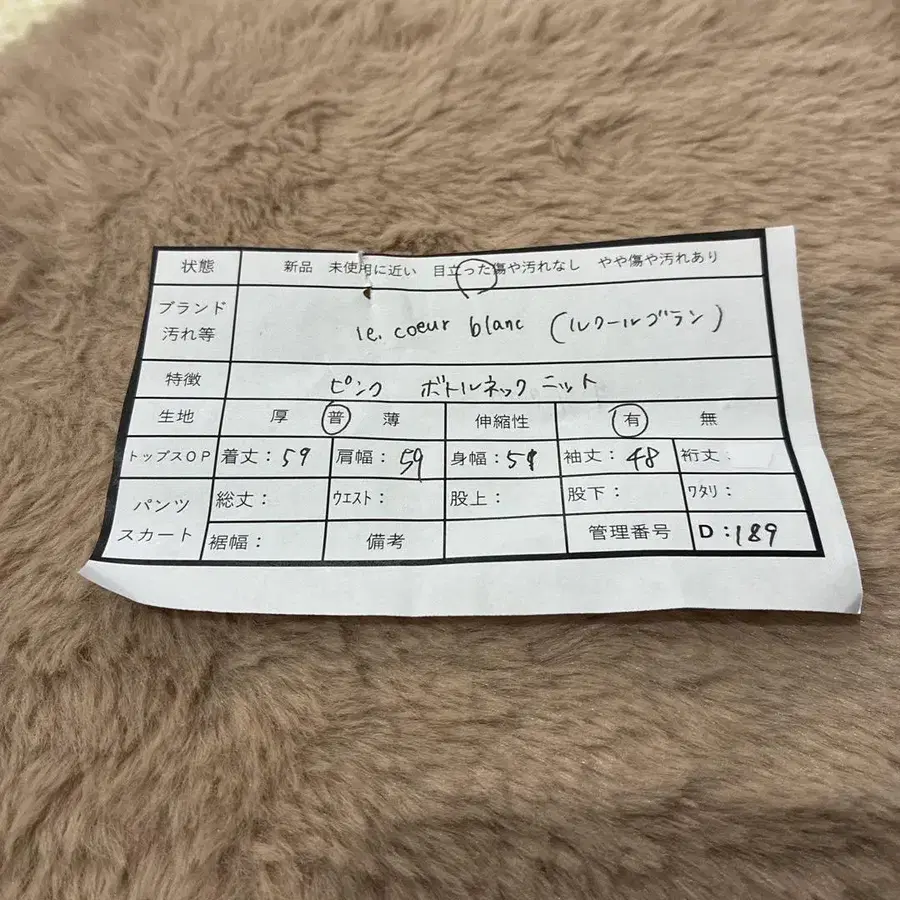 状態 新品 未使用に近い 目立った傷や汚れなし やや傷や汚れあり
ブランド
汚れ等
le. coeur blanc (ルクールブラン)
特徴 ピンク ボトルネックニット
生地 厚 普 薄 伸縮性 有 無
トップスOP 着丈:59 肩幅:59 身幅:59 袖丈:48 裄丈:
パンツ
スカート
総丈: ウエスト: 股上: 股下: ワタリ:
裾幅: 備考 管理番号 D:189